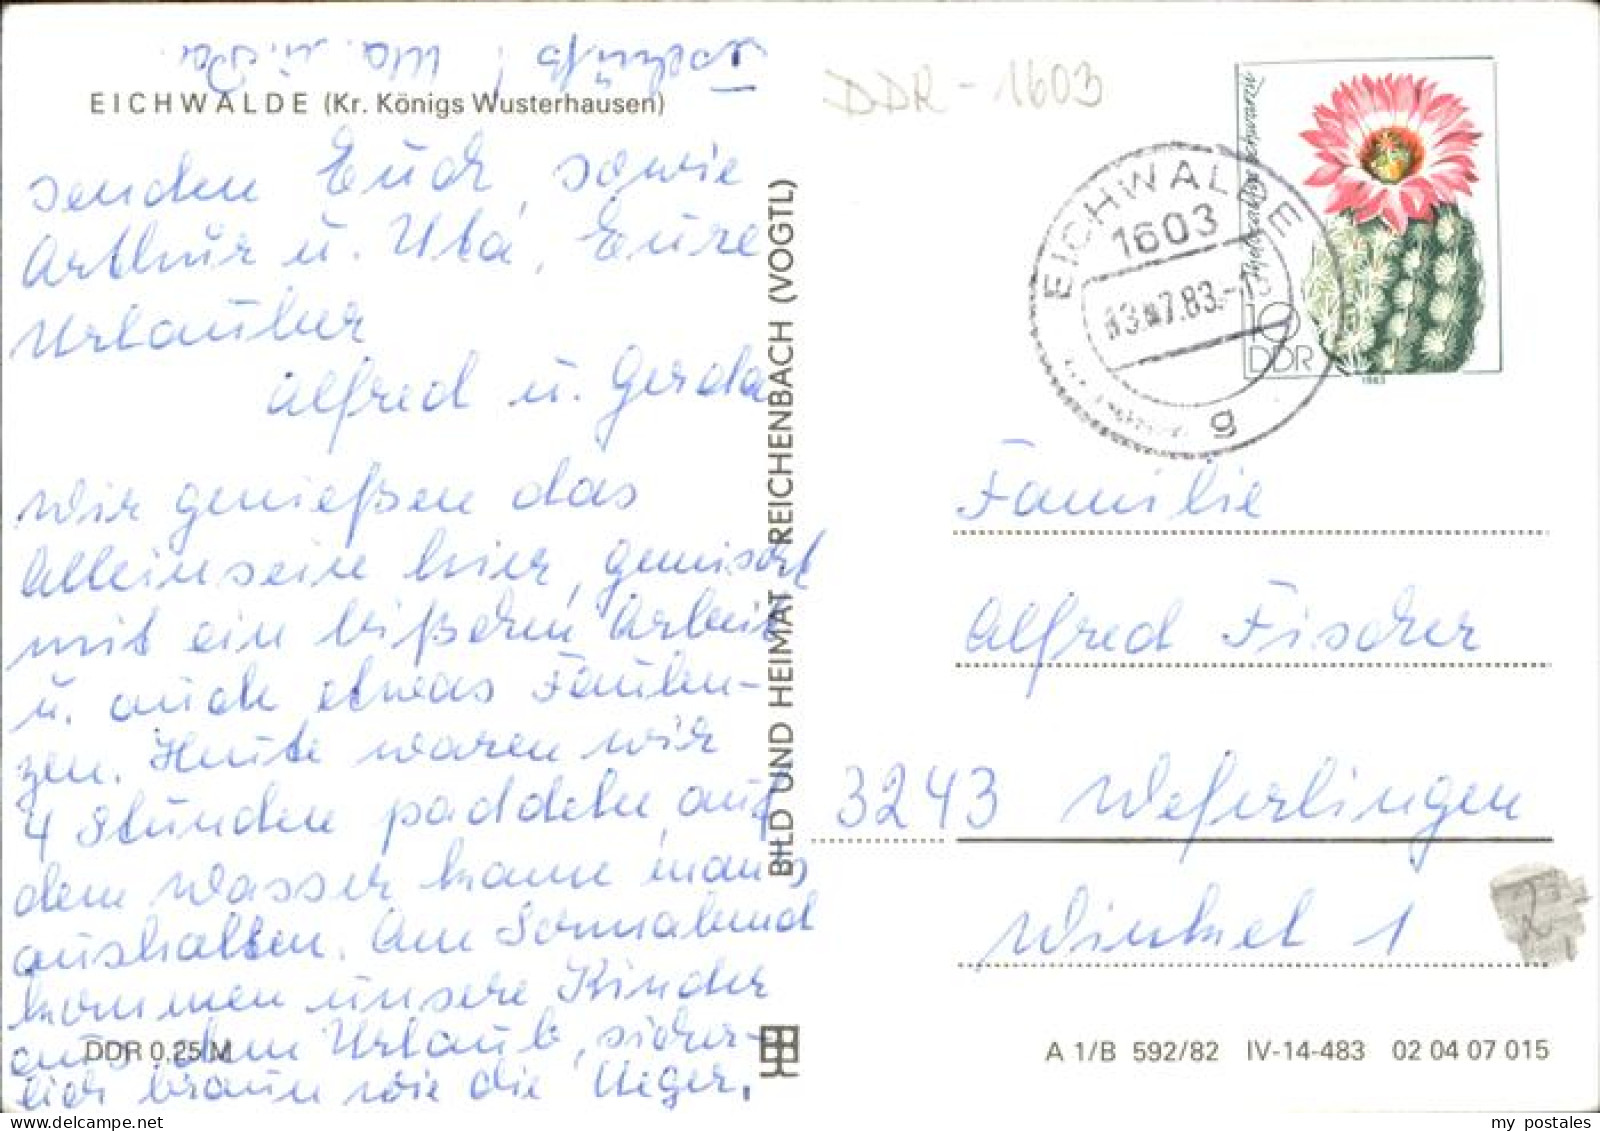 Tschüß! Ma u. Pa
EICHWALDE (Kr. Königs Wusterhausen)
senden Euch, sowie
Arthur u. Uta, Eure
Urlauber
Alfred u. Gerda
Wir genießen das
Alleinsein hier, gemischt
mit ein bißchen Arbeit
u. auch etwas Faulen-
zen. Heute waren wir
4 Stunden paddeln, auf
dem Wasser kann man's
aushalten. Am Sonnabend
kommen unsere Kinder
aus dem Urlaub, sicher-
lich braun wie die Neger.
DDR 0,25 M
BILD UND HEIMAT REICHENBACH (VOGTL)
DDR-1603
EICHWALDE
1603
13.7.83.-
g
10
DDR
1983
Familie
Alfred Fischer
3243 Weferlingen
Winkel 1
2
A 1/B 592/82 IV-14-483 02 04 07 015
my postales